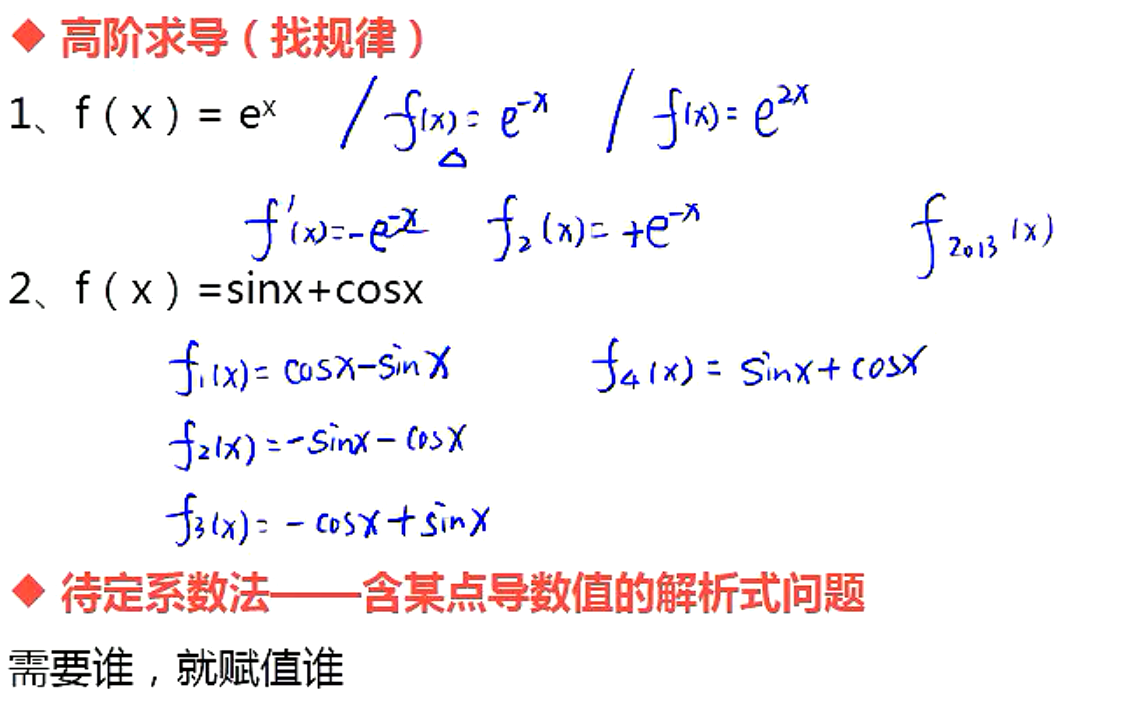 ◆ 高阶求导（找规律）
1、f(x)= eˣ / f(x)= e⁻ˣ / f(x)= e²ˣ
f′(x)=-e⁻ˣ f₂(x)= +e⁻ˣ f₂₀₁₃(x)
2、f(x)=sinx+cosx
f₁(x)= cosx-sinx f₄(x)= sinx+cosx
f₂(x)=-sinx-cosx
f₃(x)= -cosx+sinx
◆ 待定系数法——含某点导数值的解析式问题
需要谁，就赋值谁